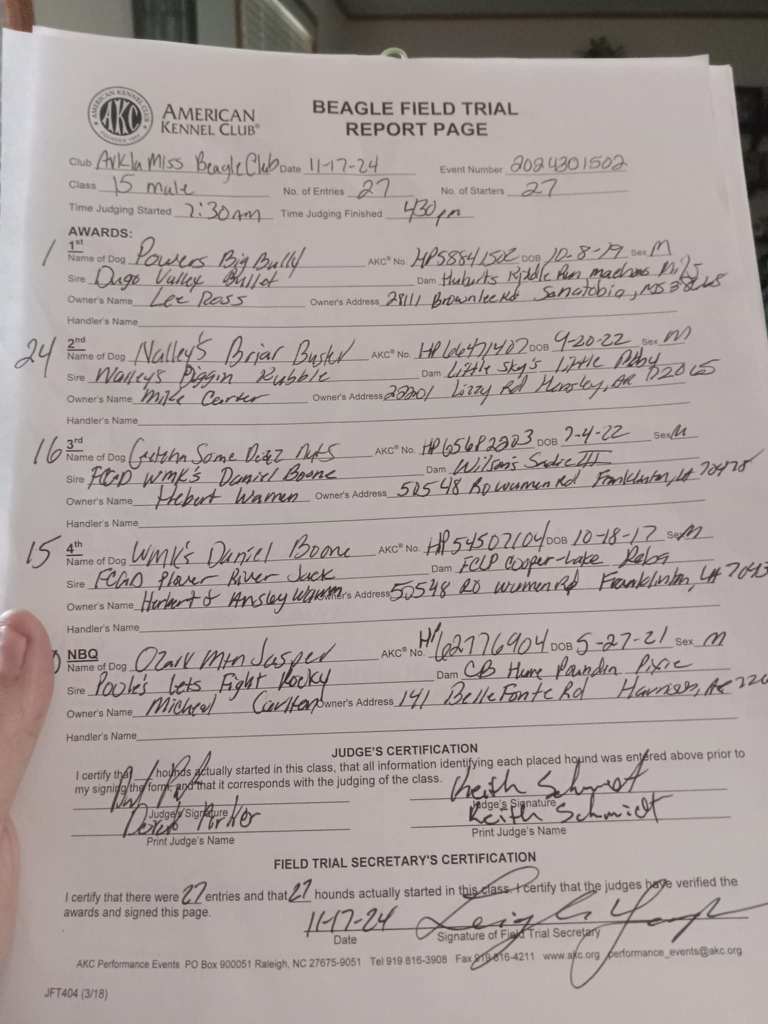 AMERICAN KENNEL CLUB
FOUNDED 1884
AKC
AMERICAN
KENNEL CLUB®
BEAGLE FIELD TRIAL
REPORT PAGE
Club ArkLaMiss Beagle Club Date 11-17-24 Event Number 2024301502
Class 15 male No. of Entries 27 No. of Starters 27
Time Judging Started 7:30 Am Time Judging Finished 430 pm
AWARDS:
1 1st
Name of Dog Powers Big Bully AKC® No. HP58841502 DOB 10-8-19 Sex M
Sire Dugo Valley Bullet Dam Huberts Riddle Run
Owner's Name Lee Ross Owner's Address 28111 Brownlee Rd Senatobia, MS
Handler's Name
24 2nd
Name of Dog Nalley's Briar Buster AKC® No. HP66471407 DOB 9-20-22 Sex M
Sire Nalley's Piggin Rubble Dam Little Sky's Little
Owner's Name Mike Carter Owner's Address Lizzy Rd Hensley, AR 72065
Handler's Name
16 3rd
Name of Dog Gettchn Some Deez Nuts AKC® No. HP65682203 DOB 7-4-22 Sex M
Sire FCGD WMK's Daniel Boone Dam Wilson's Sadie III
Owner's Name Hebert Warren Owner's Address 50548 Rd Franklinton, LA
Handler's Name
15 4th
Name of Dog WMK's Daniel Boone AKC® No. HP54507104 DOB 10-18-17 Sex M
Sire FCGD Plover River Jack Dam FCLP Cooper-Lake Reba
Owner's Name Herbert & Ansley Warren Owner's Address 50548 Rd Franklinton, LA
Handler's Name
NBQ
Name of Dog Ozark Mtn Jasper AKC® No. HP62776904 DOB 5-27-21 Sex M
Sire Poole's Lets Fight Rocky Dam CB Hune Poundin Pixie
Owner's Name Micheal Carlton Owner's Address 141 BelleFonte Rd
Handler's Name
JUDGE'S CERTIFICATION
I certify that hounds actually started in this class, that all information identifying each placed hound was entered above prior to
my signing the form, and that it corresponds with the judging of the class.
Keith Schmidt
Judge's Signature Judge's Signature
Derek Parker Keith Schmidt
Print Judge's Name Print Judge's Name
FIELD TRIAL SECRETARY'S CERTIFICATION
I certify that there were 27 entries and that 27 hounds actually started in this class. I certify that the judges have verified the
awards and signed this page.
11-17-24
Date Signature of Field Trial Secretary
AKC Performance Events PO Box 900051 Raleigh, NC 27675-9051 Tel 919 816-3908 Fax 919 816-4211 www.akc.org performance_events@akc.org
JFT404 (3/18)